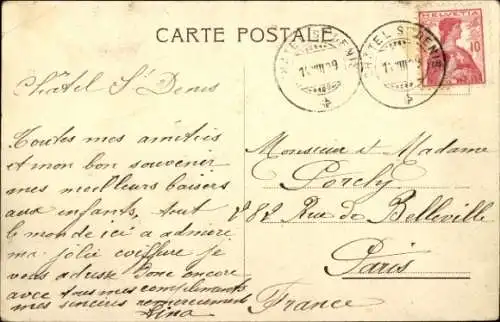 CARTE POSTALE
HELVETIA
10
CHATEL ST DENIS
CHATEL ST DENIS
Châtel St Denis
Toutes mes amitiés
et mon bon souvenir
mes meilleurs baisers
aux enfants, tout
le monde ici a admiré
ma jolie coiffure je
vous adresse donc encore
avec tous mes compliments
mes sincères remerciements
Lina
Monsieur et Madame
Porchy
282 Rue de Belleville
Paris
France